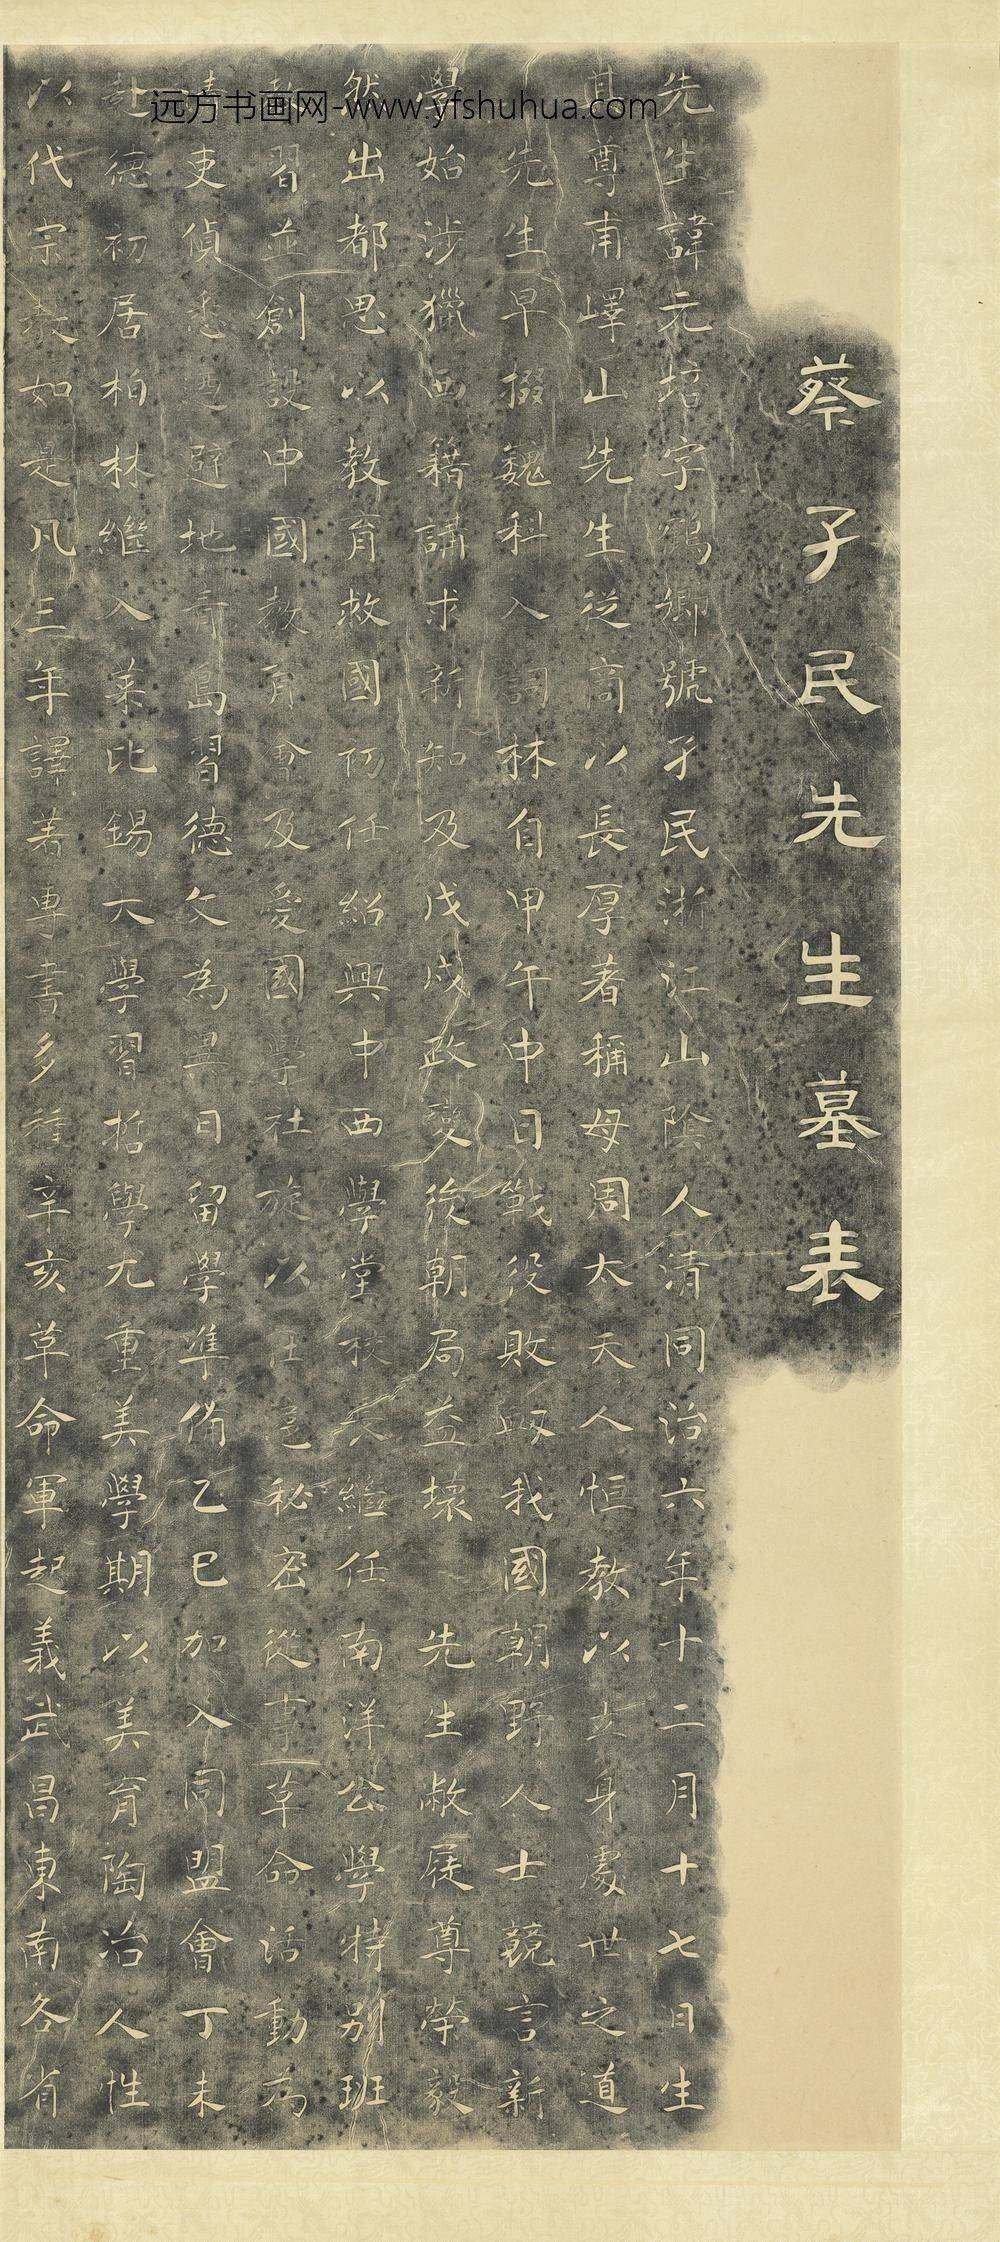 远方书画网-www.yfshuhua.com
蔡孑民先生墓表
先生諱元培字鶴卿號孑民浙江山陰人清同治六年十二月十七日生
其尊甫嶧山先生從商以長厚著稱母周太夫人恒教以立身處世之道
先生早掇巍科入詞林自甲午中日戰役敗衂我國朝野人士競言新
學始涉獵西籍講求新知及戊戌政變後朝局益壞 先生敝屣尊榮毅
然出都思以教育救國初任紹興中西學堂校長繼任南洋公學特別班
習並創設中國教育會及愛國學社旋以在邑秘密從事革命活動為
清吏偵悉迺避地青島習德文為異日留學準備乙巳加入同盟會丁未
赴德初居柏林繼入萊比錫大學習哲學尤重美學期以美育陶冶人性
以代宗教如是凡三年譯著專書多種辛亥革命軍起義武昌東南各省